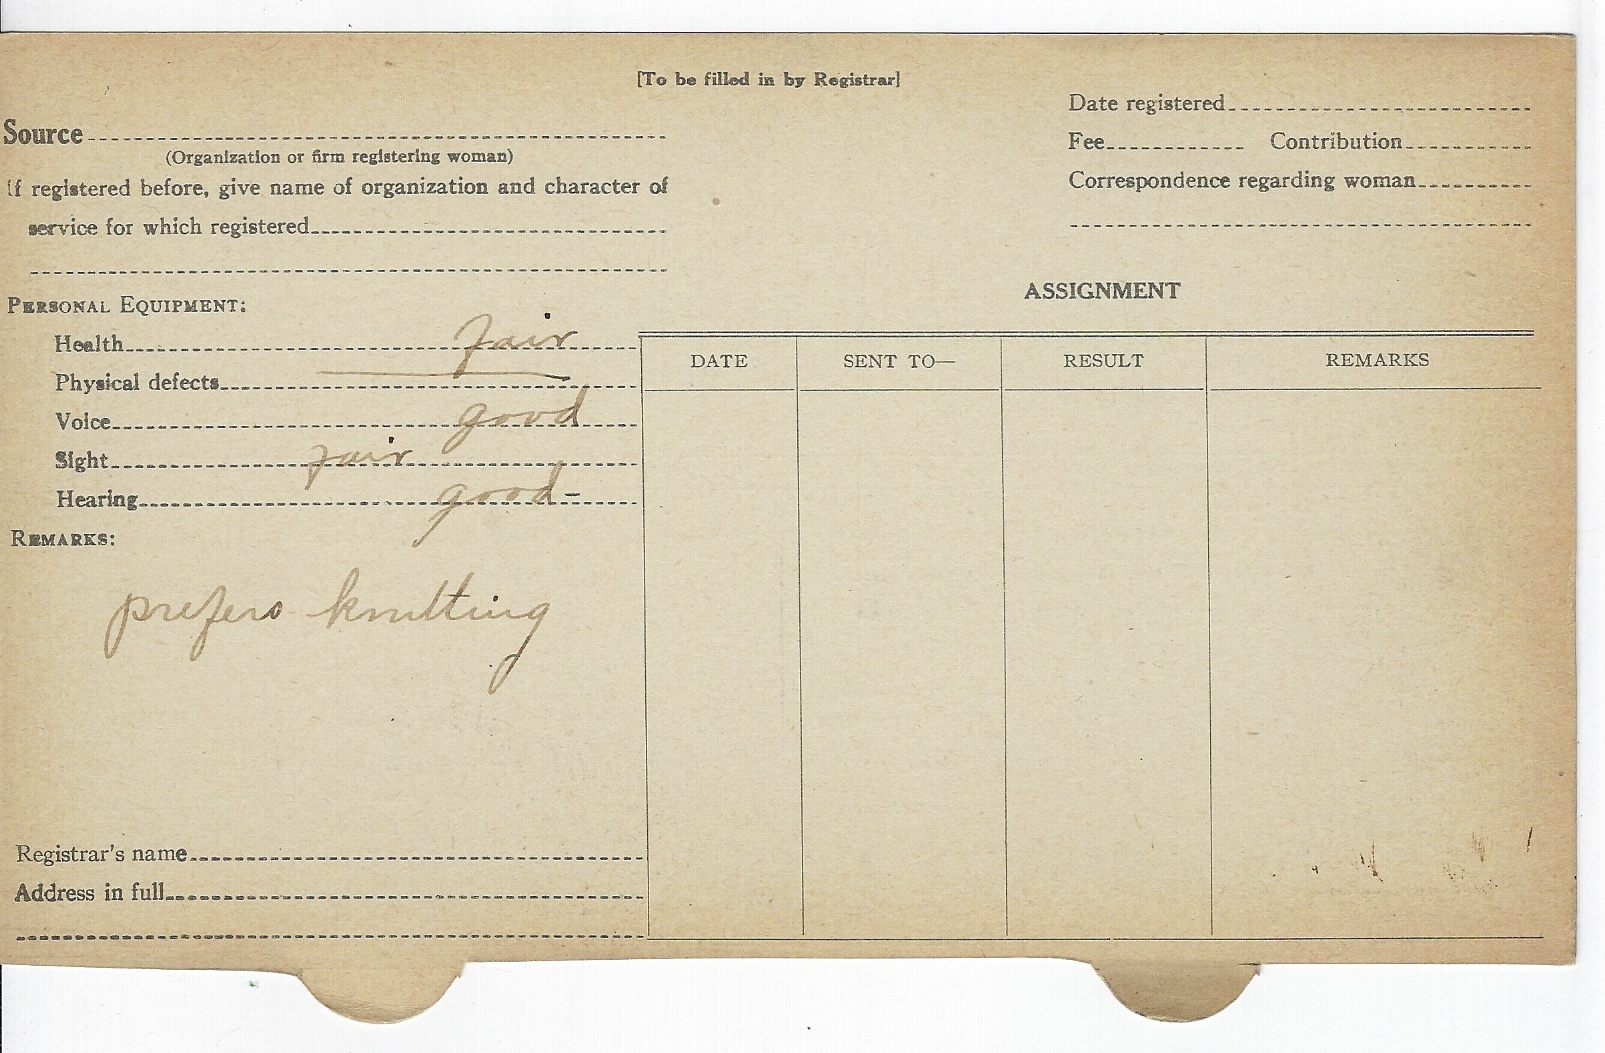 [To be filled in by Registrar]
Source
(Organization or firm registering woman)
If registered before, give name of organization and character of
service for which registered
Date registered
Fee Contribution
Correspondence regarding woman
PERSONAL EQUIPMENT:
Health fair
Physical defects
Voice good
Sight fair
Hearing good-
REMARKS:
prefers knitting
Registrar's name
Address in full
ASSIGNMENT
DATE SENT TO— RESULT REMARKS